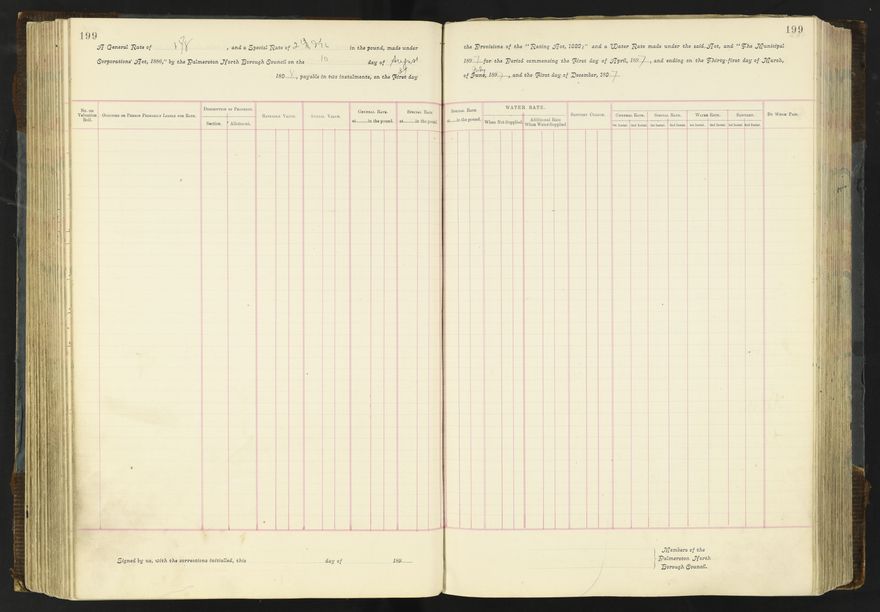 199
A General Rate of , and a Special Rate of in the pound, made under
Corporations Act, 1886," by the Palmerston North Borough Council on the 10 day of August
189 , payable in two instalments, on the First day
No. on Valuation Roll.
Occupier or Person Primarily Liable for Rate.
Description of Property.
Section.
Allotment.
Rateable Value.
Annual Value.
General Rate
at in the pound.
Special Rate
at in the pound.
Signed by us, with the corrections initialled, this day of 189
199
the Provisions of the "Rating Act, 1882;" and a Water Rate made under the said Act, and "The Municipal
189 for the Period commencing the First day of April, 189 , and ending on the Thirty-first day of March,
July
of June, 189 , and the First day of December, 189
Special Rate
at in the pound.
WATER RATE.
When Not Supplied.
Additional Rate When Water Supplied
Sanitary Charge.
General Rate.
Special Rate.
Water Rate.
Sanitary.
1st Instal. 2nd Instal. 1st Instal. 2nd Instal. 1st Instal. 2nd Instal. 1st Instal. 2nd Instal.
By Whom Paid.
Members of the
Palmerston North
Borough Council.